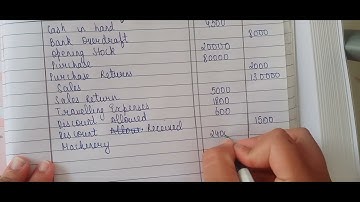 Cash in hand 4500
Bank Overdraft 8000
Opening Stock 20000
Purchase 80000
Purchase Returns 2000
Sales 130000
Sales Return 5000
Travelling Expenses 1800
Discount Allowed 600
Discount Received 1500
Machinery 240